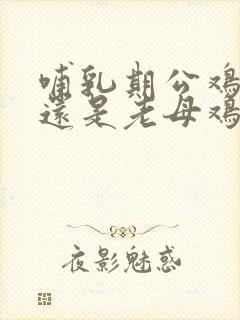 哺乳期公鸡
還是老母鸡
夜影魅惑